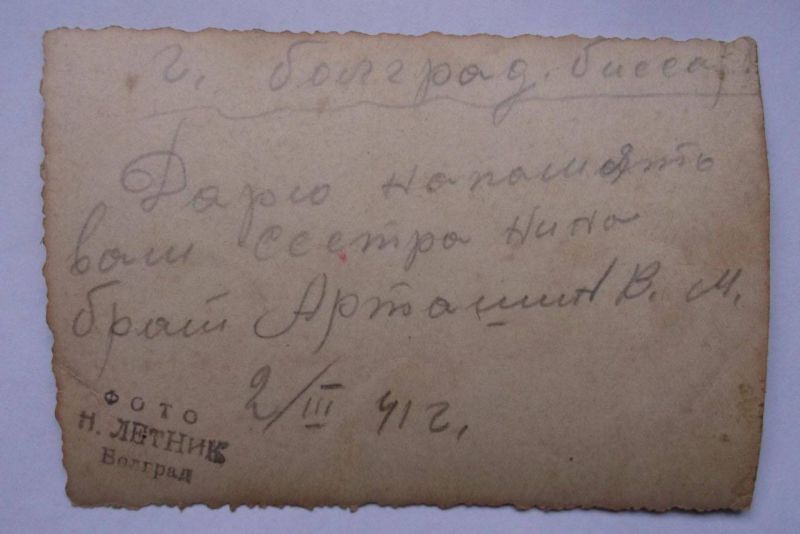 г. болград. бисса
Дарю напомять
вам сестра Нина
брат Арташин В. М.
2/III 41 г.
ФОТО
Н. ЛЕТНИК
Болград